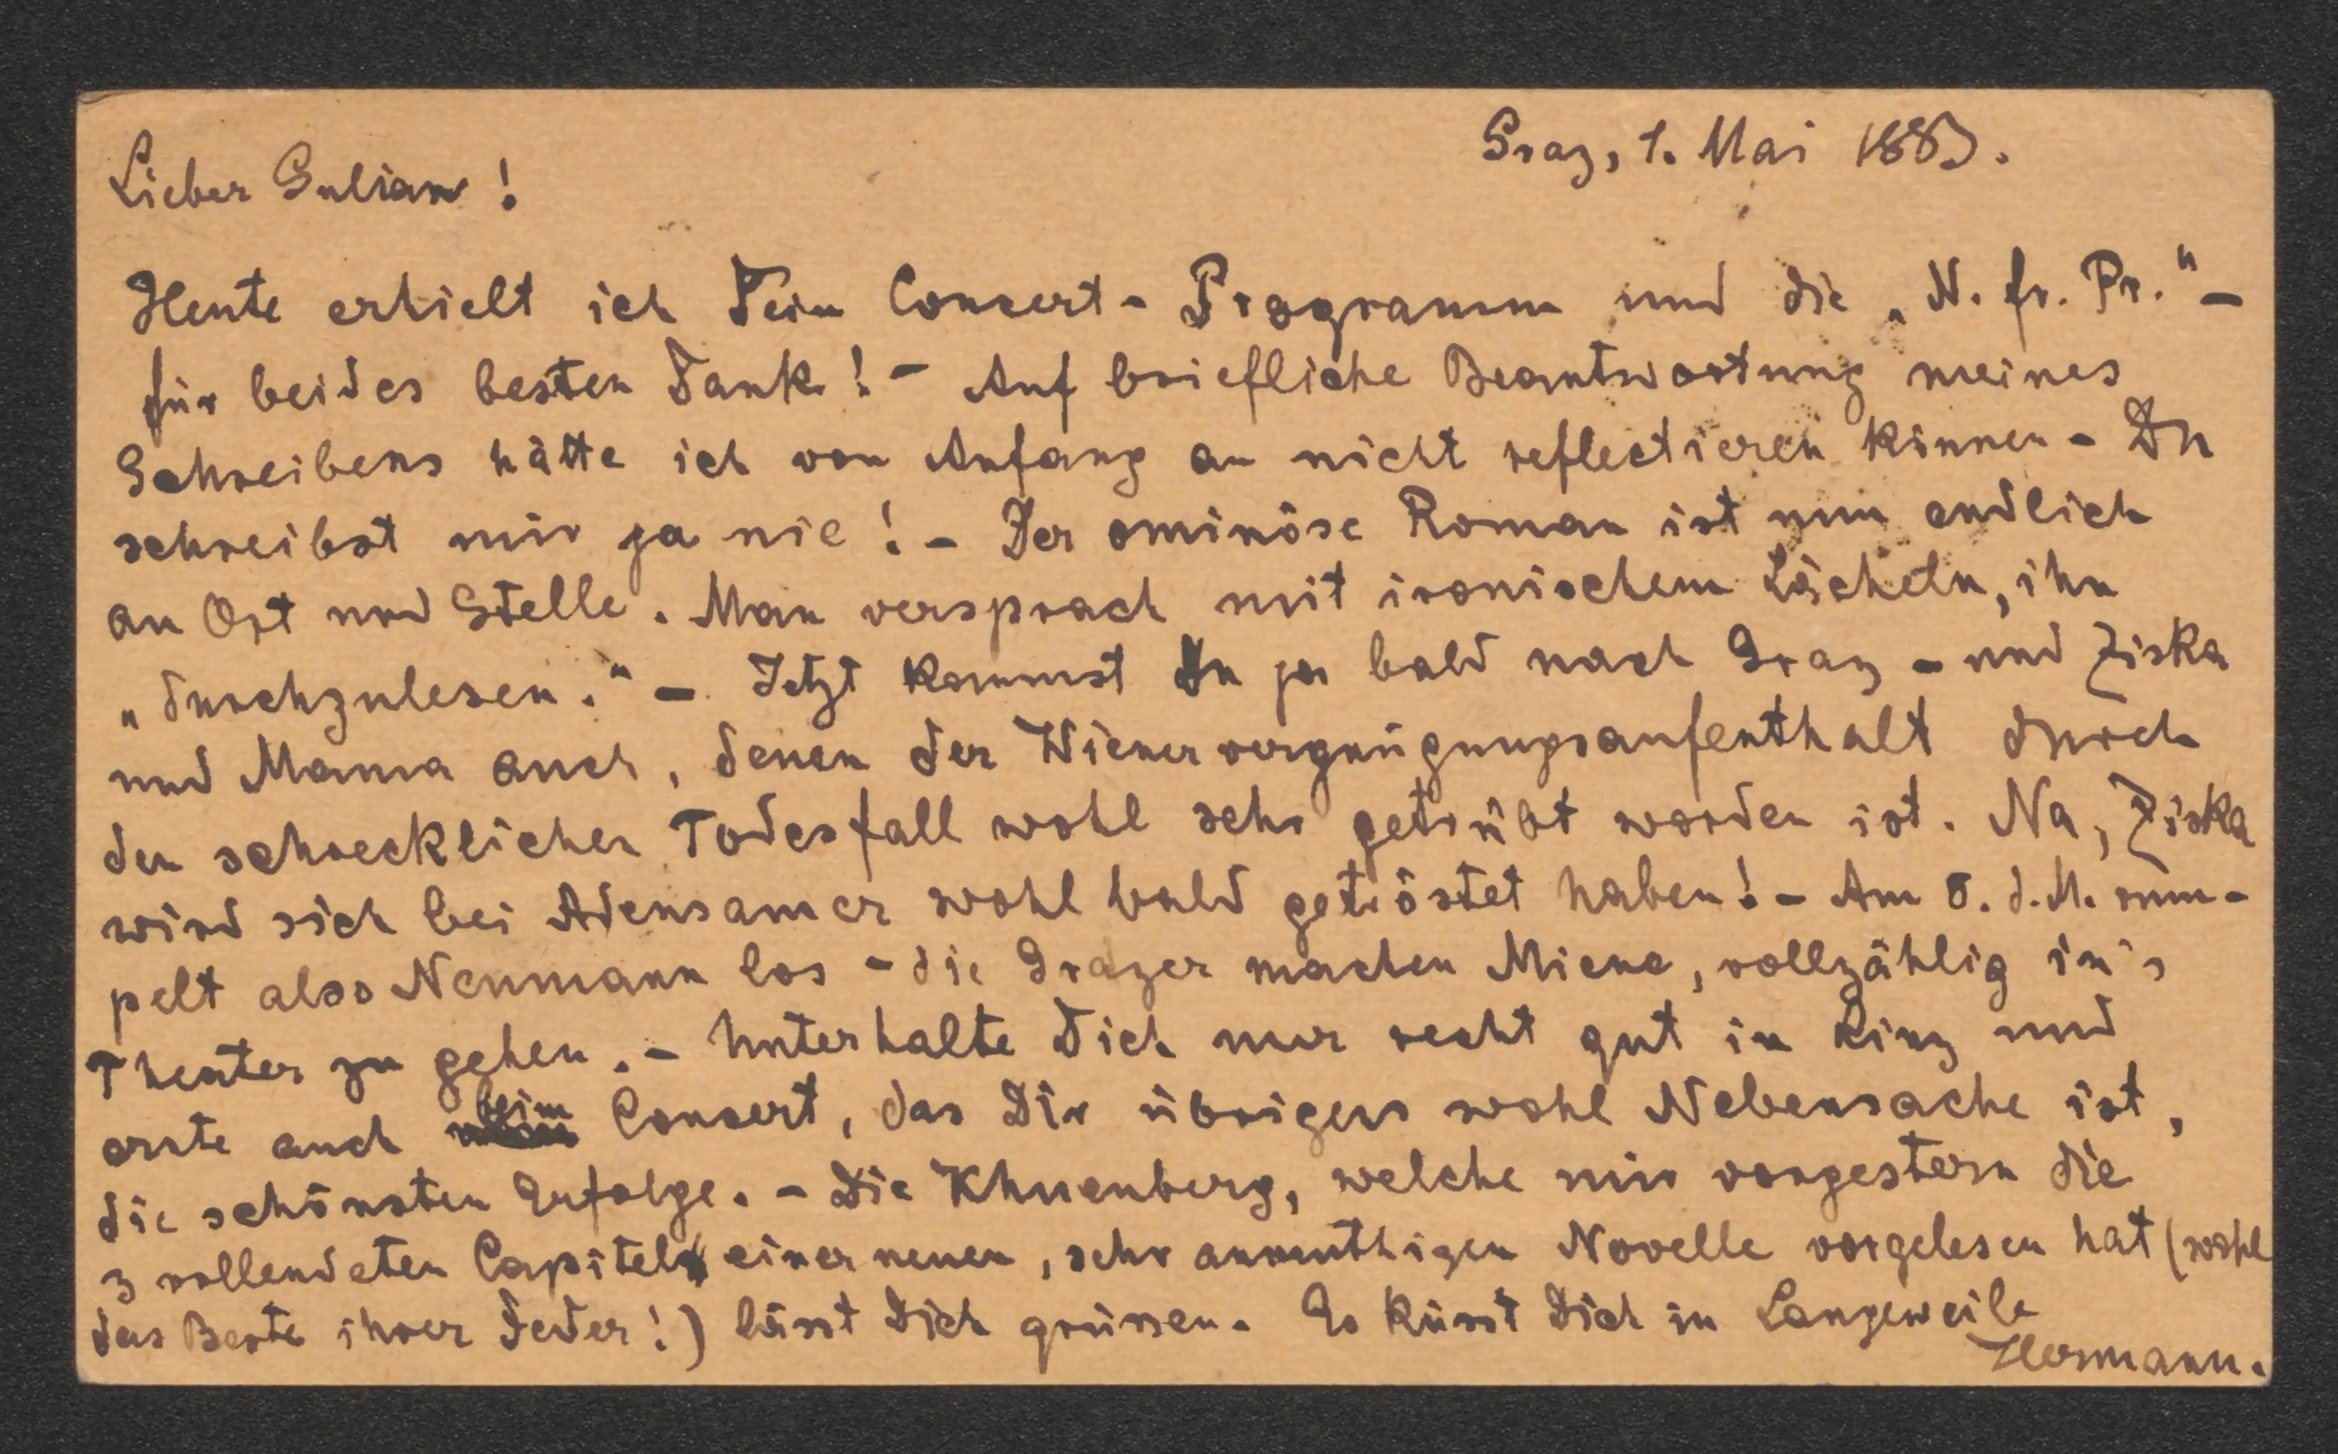 Graz, 1. Mai 1883.
Lieber Gulian!
Heute erhielt ich Dein Concert-Programm und die „N. fr. Pr." –
für beides besten Dank! – Auf briefliche Beantwortung meines
Schreibens hätte ich von Anfang an nicht reflectieren können – Du
schreibst mir ja nie! – Der ominöse Roman ist nun endlich
an Ort und Stelle. Man versprach mit ironischem Lächeln, ihn
„durchzulesen." – Jetzt kommst Du ja bald nach Graz – und Ziska
und Mama auch, denen der Wienervergnügungsaufenthalt durch
den schrecklichen Todesfall wohl sehr getrübt worden ist. Na, Ziska
wird sich bei Adensamer wohl bald getröstet haben! – Am 5. d. M. rum-
pelt also Neumann los – die Grazer machen Miene, vollzählig in's
Theater zu gehen. – Unterhalte Dich nur recht gut in Linz und
ernte auch beim Concert, das Dir übrigens wohl Nebensache ist,
die schönsten Erfolge. – Die Khuenberg, welche mir vorgestern die
3 vollendeten Capitel einer neuen, sehr anmuthigen Novelle vorgelesen hat (wohl
das Beste ihrer Feder!) lässt Dich grüssen. Es küsst Dich in Langeweile
Hermann.